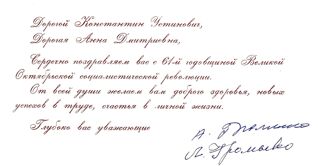 Дорогой Константин Устинович,
Дорогая Анна Дмитриевна,
Сердечно поздравляем вас с 61-й годовщиной Великой
Октябрьской социалистической революции.
От всей души желаем вам доброго здоровья, новых
успехов в труде, счастья в личной жизни.
Глубоко вас уважающие
А. Громыко
Л. Громыко